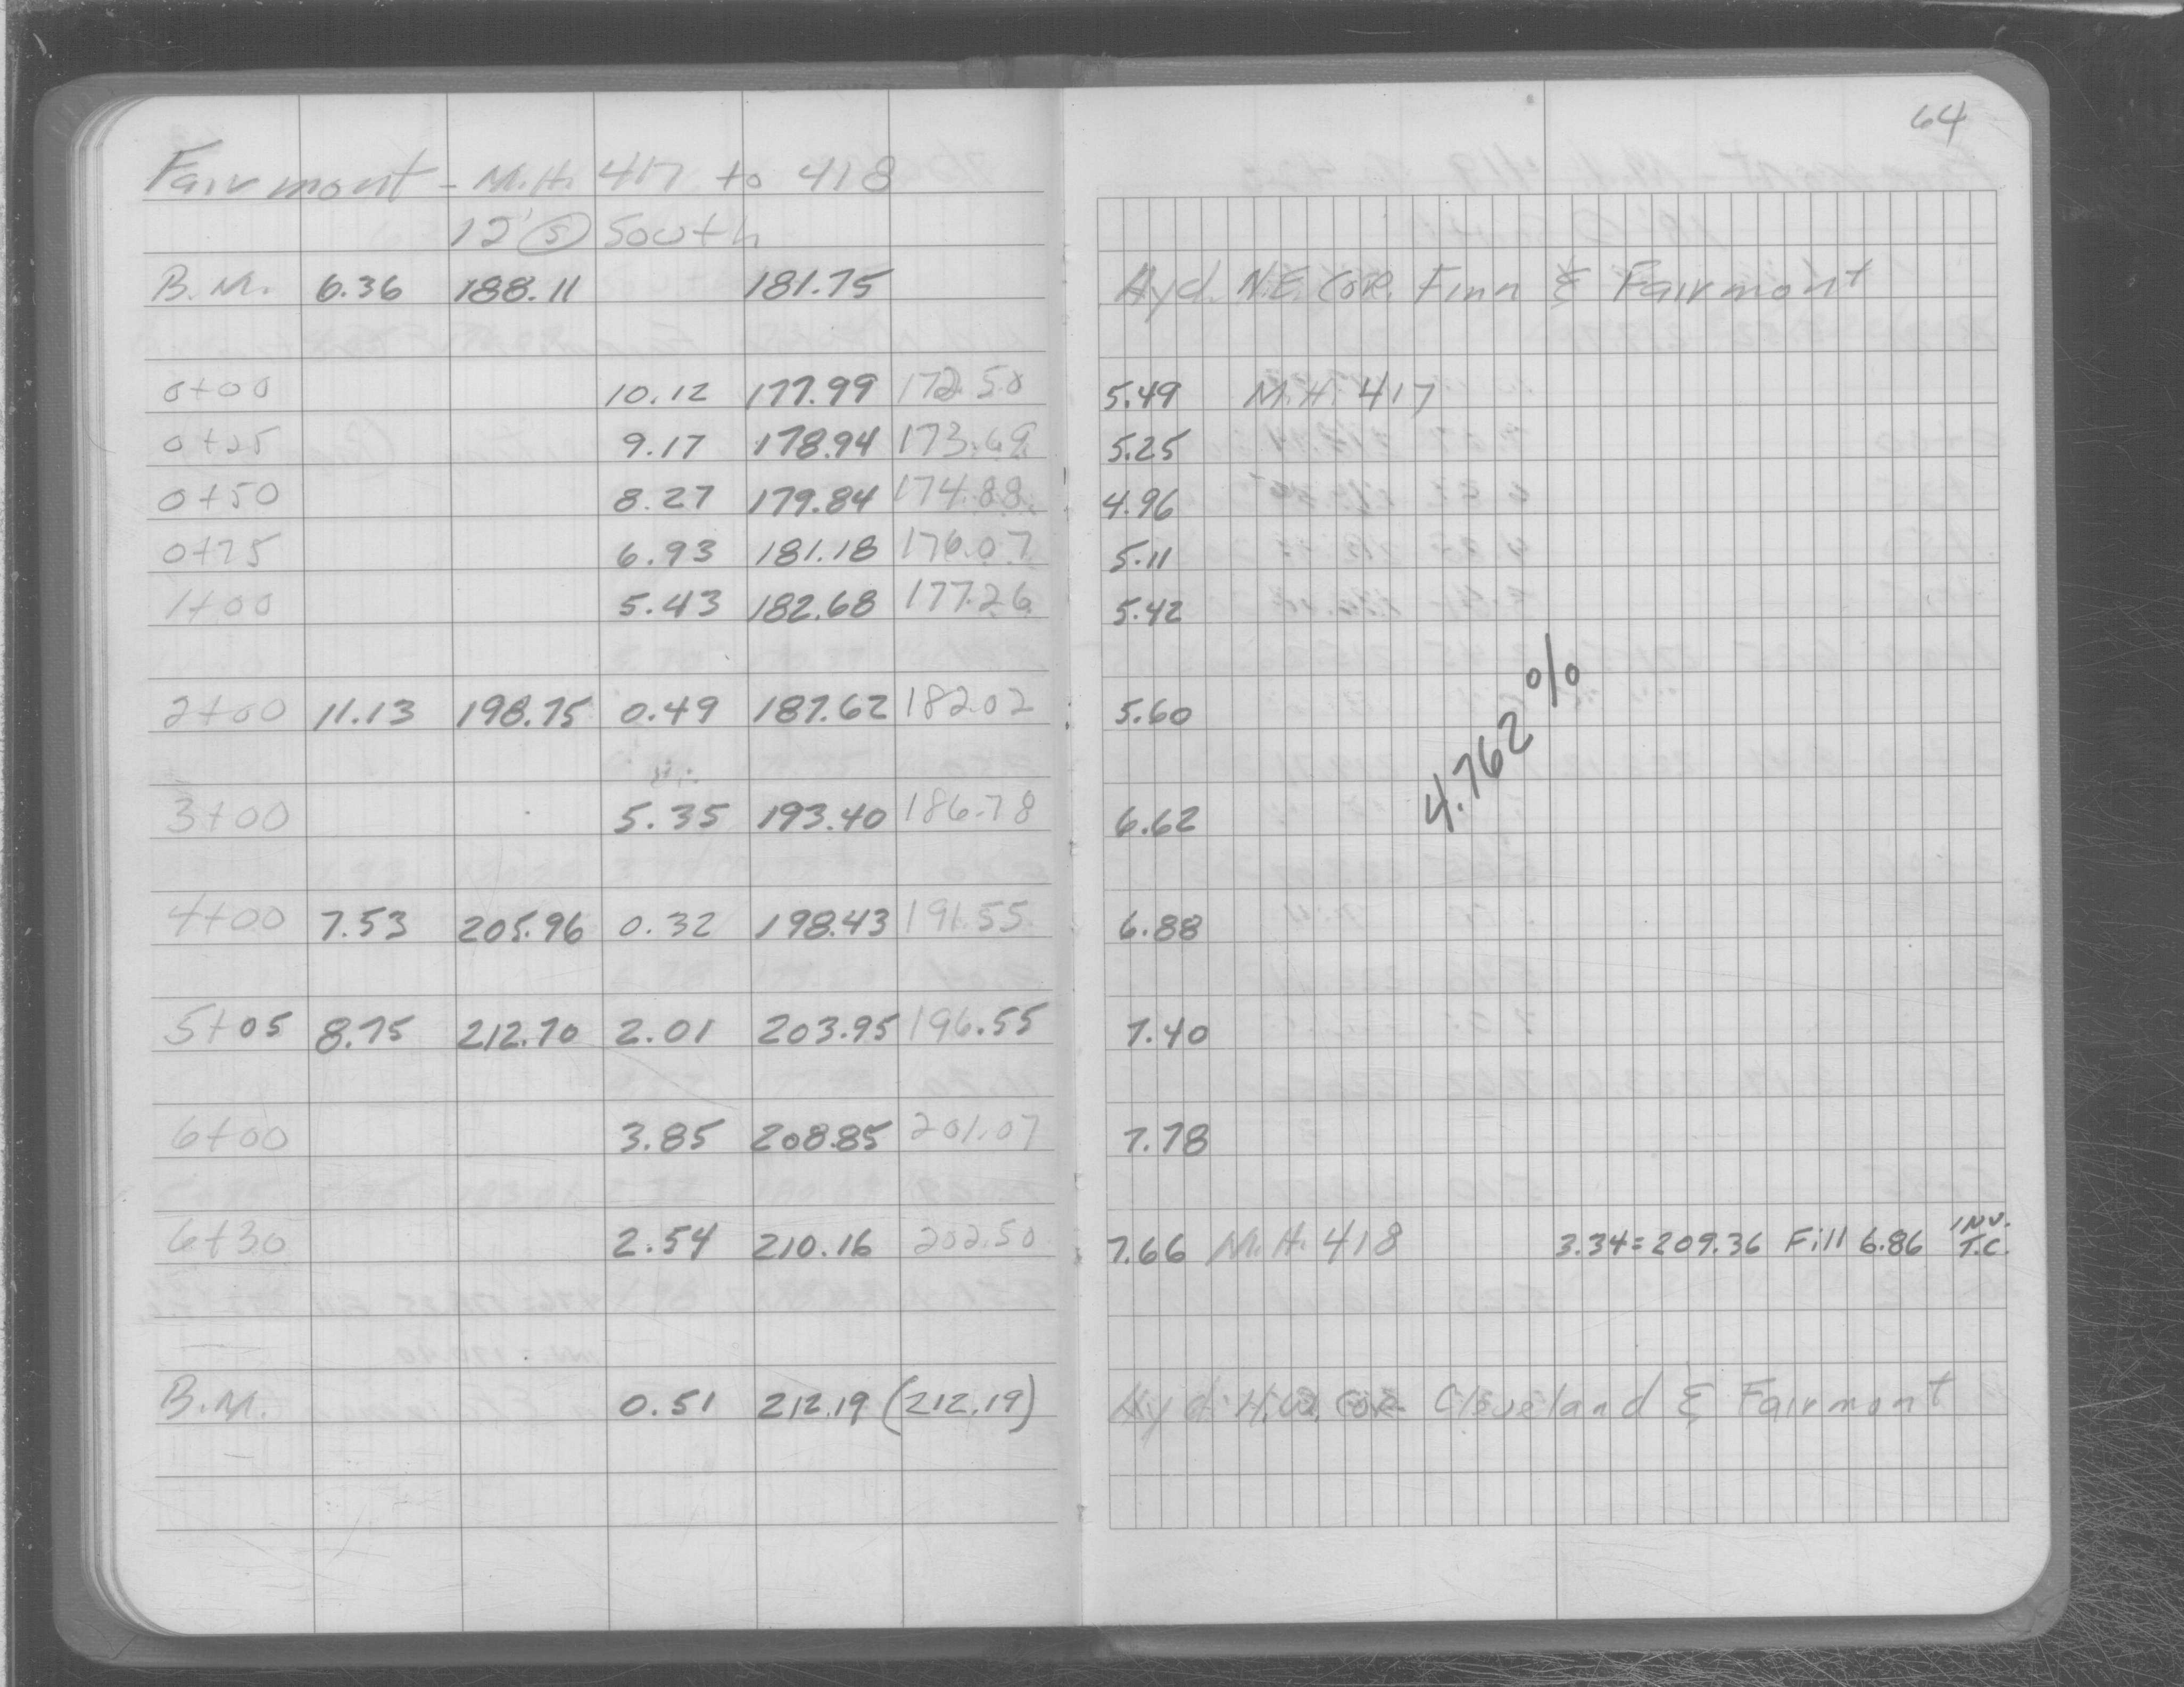 64
Fairmont - M.H. 417 to 418
12' (S) South
B.M. 6.36 188.11 181.75 Hyd. N.E. Cor. Finn & Fairmont
0+00 10.12 177.99 172.50 5.49 M.H. 417
0+25 9.17 178.94 173.69 5.25
0+50 8.27 179.84 174.88 4.96
0+75 6.93 181.18 176.07 5.11
1+00 5.43 182.68 177.26 5.42
2+00 11.13 198.75 0.49 187.62 182.02 5.60
4.762%
3+00 5.35 193.40 186.78 6.62
4+00 7.53 205.96 0.32 198.43 191.55 6.88
5+05 8.75 212.70 2.01 203.95 196.55 7.40
6+00 3.85 208.85 201.07 7.78
6+30 2.54 210.16 202.50 7.66 M.H. 418 3.34=209.36 Fill 6.86 INV. T.C.
B.M. 0.51 212.19 (212.19) Hyd. Cor. Cleveland & Fairmont